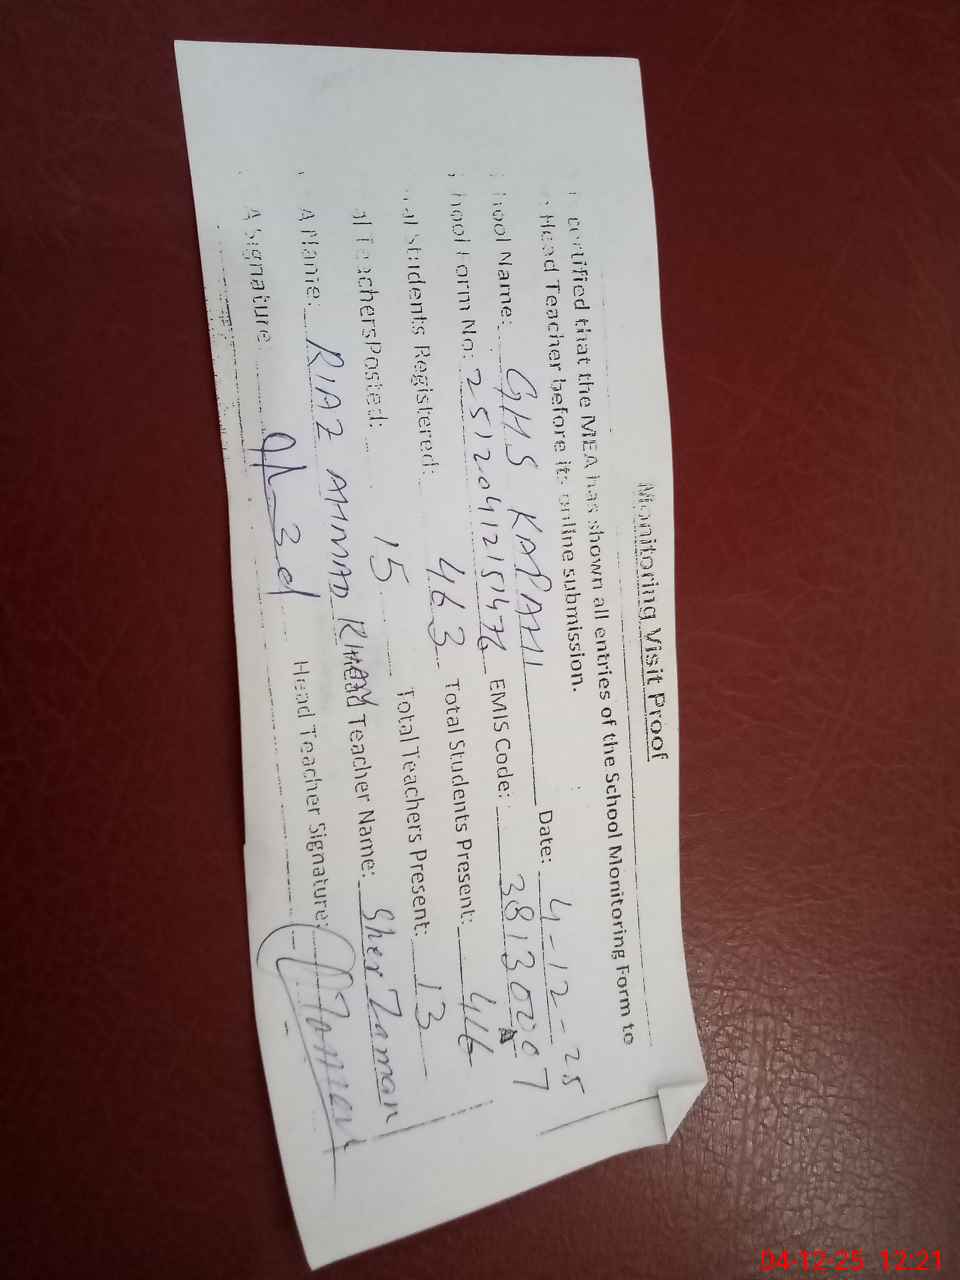 Monitoring Visit Proof
certified that the MEA has shown all entries of the School Monitoring Form to
Head Teacher before its online submission.
hool Name: GHS KAPAHI Date: 4-12-25
hool Form No: EMIS Code:
al Students Registered: 463 Total Students Present: 416
al Teachers Posted: 15 Total Teachers Present: 13
A Name: RIAZ AHMAD KHAN Head Teacher Name: Sher Zaman
A Signature Head Teacher Signature:
04-12-25 12:21